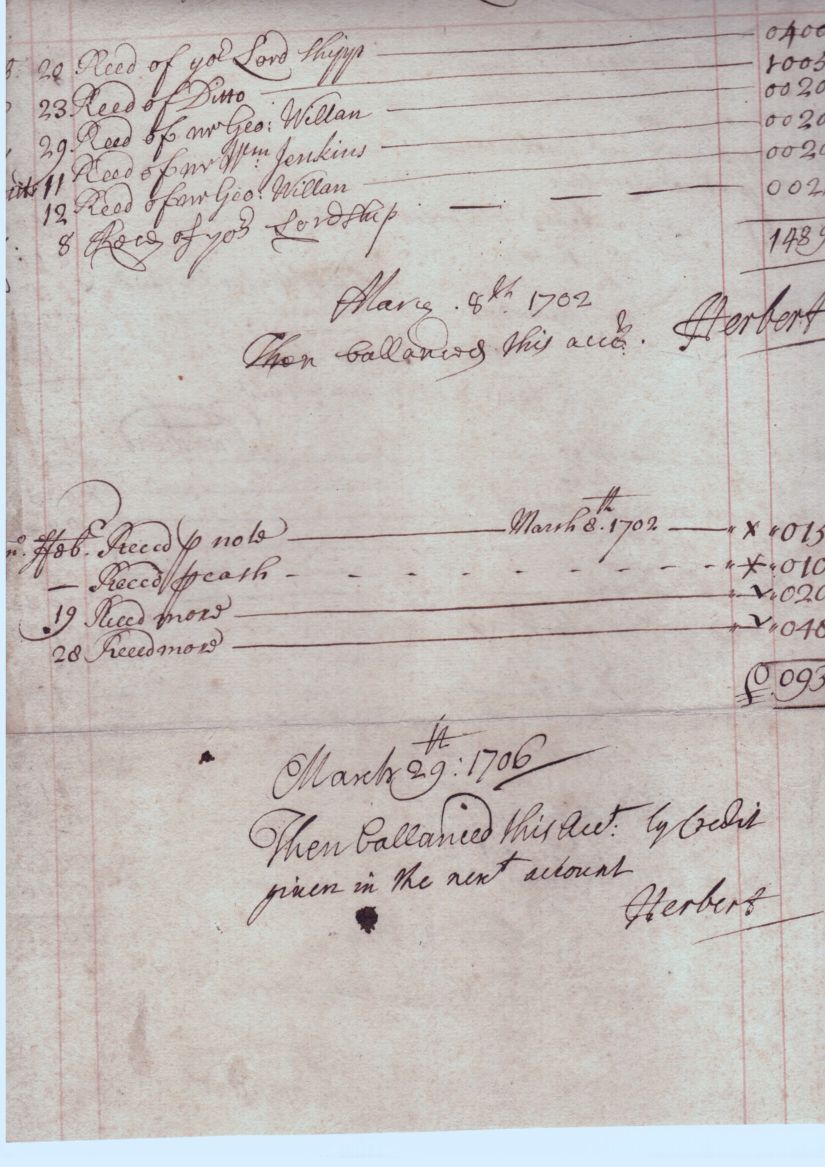 20 Recd of yor Lord shipp 0400
23 Recd of Ditto 1005
29 Recd of mr Geo: Willan 0020
11 Recd of mr Wm Jenkins 0020
12 Recd of mr Geo: Willan 0020
8 Recd of yor Lordship 002
1489
8th 1702
Then ballanced this acct. Herbert
Feb. Recd p note March 8th 1702 015
Recd p cash 010
19 Recd more 020
28 Recd more 040
£ 093
March 29th: 1706
Then ballanced this Acct: by Credit
given in the next account
Herbert